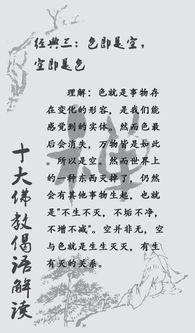 经典三：色即是空，
空即是色
理解：色就是事物存
在变化的形容，是我们能
感觉到的实体。然而色最
后会消失，万物皆是如此
，所以是空。然而世界上
的一种东西灭掉了，仍然
会有其他事物生起，也就
是“不生不灭，不垢不净，
不增不减”。空并非无，空
与色就是生生灭灭，有生
有灭的关系。
十大佛教偈语解读